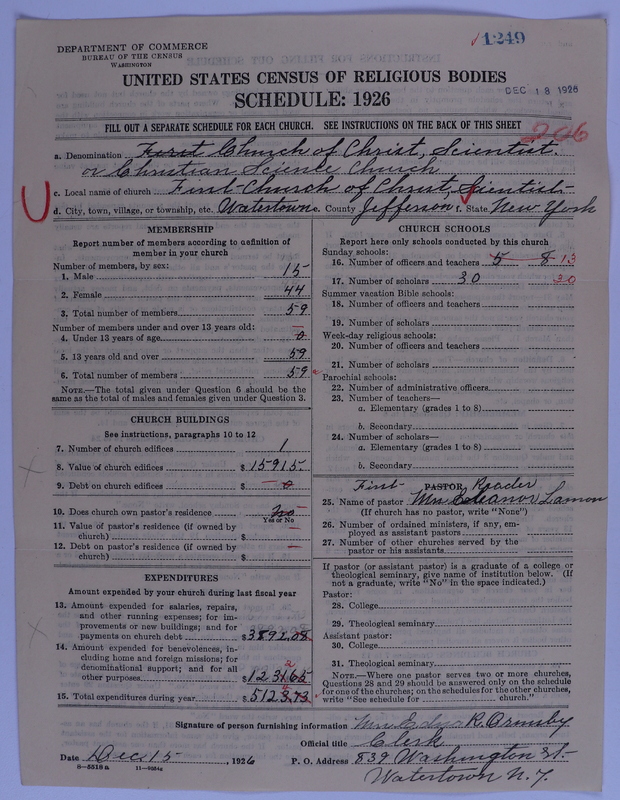 1249
DEPARTMENT OF COMMERCE
BUREAU OF THE CENSUS
WASHINGTON
UNITED STATES CENSUS OF RELIGIOUS BODIES
DEC 18 1926
SCHEDULE: 1926
FILL OUT A SEPARATE SCHEDULE FOR EACH CHURCH. SEE INSTRUCTIONS ON THE BACK OF THIS SHEET
206
a. Denomination First Church of Christ, Scientist.
or Christian Science Church
c. Local name of church First Church of Christ, Scientist
d. City, town, village, or township, etc. Watertown e. County Jefferson f. State New York
MEMBERSHIP
Report number of members according to definition of
member in your church
Number of members, by sex:
1. Male 15
2. Female 44
3. Total number of members 59
Number of members under and over 13 years old:
4. Under 13 years of age 0
5. 13 years old and over 59
6. Total number of members 59
NOTE.—The total given under Question 6 should be the
same as the total of males and females given under Question 3.
CHURCH BUILDINGS
See instructions, paragraphs 10 to 12
7. Number of church edifices 1
8. Value of church edifices $15915.
9. Debt on church edifices $ 0
10. Does church own pastor's residence no
Yes or No
11. Value of pastor's residence (if owned by
church) $
12. Debt on pastor's residence (if owned by
church) $
EXPENDITURES
Amount expended by your church during last fiscal year
13. Amount expended for salaries, repairs,
and other running expenses; for im-
provements or new buildings; and for
payments on church debt $3892.08
14. Amount expended for benevolences, in-
cluding home and foreign missions; for
denominational support; and for all
other purposes $1231.65
2
15. Total expenditures during year $5123.73
CHURCH SCHOOLS
Report here only schools conducted by this church
Sunday schools:
16. Number of officers and teachers 5 8 13
17. Number of scholars 30 30
Summer vacation Bible schools:
18. Number of officers and teachers
19. Number of scholars
Week-day religious schools:
20. Number of officers and teachers
21. Number of scholars
Parochial schools:
22. Number of administrative officers
23. Number of teachers—
a. Elementary (grades 1 to 8)
b. Secondary
24. Number of scholars—
a. Elementary (grades 1 to 8)
b. Secondary
First PASTOR Reader
25. Name of pastor Mrs Eleanor Lamon
(If church has no pastor, write "None")
26. Number of ordained ministers, if any, em-
ployed as assistant pastors
27. Number of other churches served by the
pastor or his assistants
If pastor (or assistant pastor) is a graduate of a college or
theological seminary, give name of institution below. (If
not a graduate, write "No" in the space indicated.)
Pastor:
28. College
29. Theological seminary
Assistant pastor:
30. College
31. Theological seminary
NOTE.—Where one pastor serves two or more churches,
Questions 28 and 29 should be answered only on the schedule
for one of the churches; on the schedules for the other churches,
write "See schedule for church."
Signature of person furnishing information Mrs. Edna R. Ormsby
Official title Clerk
Date Dec 15, 1926 P. O. Address 839 Washington St.
8—5518a 11—9554a
Watertown N.Y.